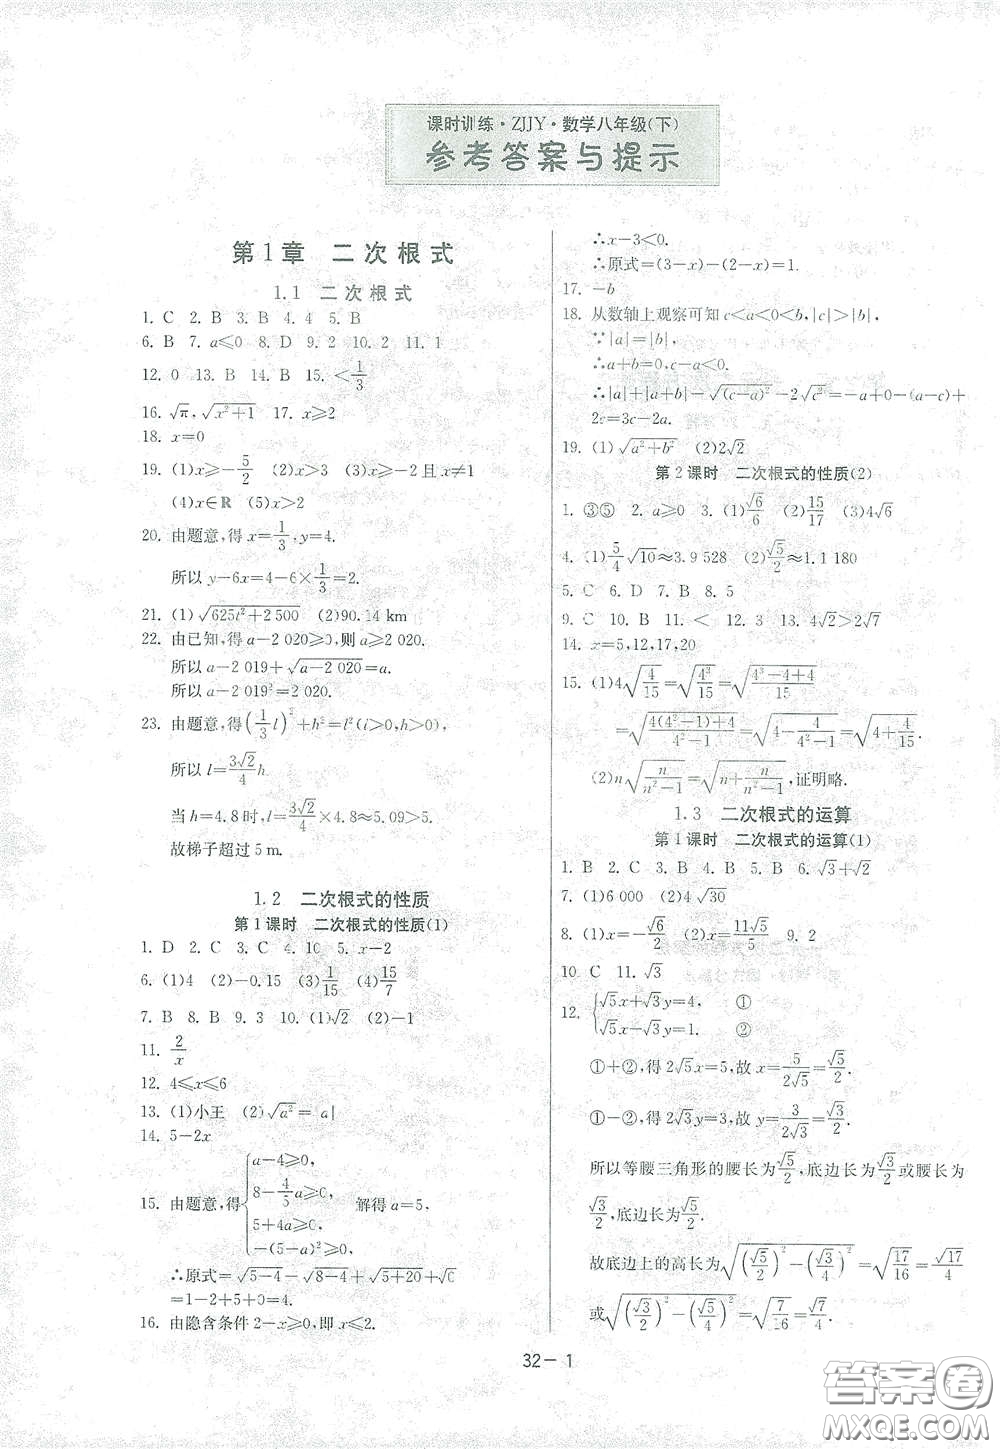 课时训练·ZJJY·数学八年级(下)
参考答案与提示
第1章 二次根式
1.1 二次根式
1. C 2. B 3. B 4. 4 5. B
6. B 7. a≤0 8. D 9. 2 10. 2 11. 1
12. 0 13. B 14. B 15. <1/3
16. √π, √(x²+1) 17. x≥2
18. x=0
19. (1)x≥-5/2 (2)x>3 (3)x≥-2且x≠1
(4)x∈R (5)x>2
20. 由题意,得x=1/3, y=4.
所以y-6x=4-6×1/3=2.
21. (1)√(625t²+2 500) (2)90.14 km
22. 由已知,得a-2 020≥0,则a≥2 020.
所以a-2 019+√(a-2 020)=a.
所以a-2 019²=2 020.
23. 由题意,得(1/3 l)²+h²=l²(l>0,h>0),
所以l=3√2/4 h.
当h=4.8时,l=3√2/4×4.8≈5.09>5.
故梯子超过5 m.
1.2 二次根式的性质
第1课时 二次根式的性质(1)
1. D 2. C 3. C 4. 10 5. x-2
6. (1)4 (2)-0.15 (3)1/15 (4)15/7
7. B 8. B 9. 3 10. (1)√2 (2)-1
11. 2/x
12. 4≤x≤6
13. (1)小王 (2)√a²=|a|
14. 5-2x
15. 由题意,得{a-4≥0,
8-4/5a≥0,
5+4a≥0,
-(5-a)²≥0,
解得a=5,
∴原式=√(5-4)-√(8-4)+√(5+20)+√0
=1-2+5+0=4.
16. 由隐含条件2-x≥0,即x≤2.
∴x-3<0.
∴原式=(3-x)-(2-x)=1.
17. -b
18. 从数轴上观察可知c<a<0<b,|c|>|b|,
∵|a|=|b|,
∴a+b=0,c-a<0.
∴|a|+|a+b|-√(c-a)²-2√c²=-a+0-(a-c)+
2c=3c-2a.
19. (1)√(a²+b²) (2)2√2
第2课时 二次根式的性质(2)
1. ③⑤ 2. a≥0 3. (1)√6/6 (2)15/17 (3)4√6
4. (1)5/4√10≈3.9 528 (2)√5/2≈1.1 180
5. C 6. D 7. B 8. 5
9. C 10. B 11. < 12. 3 13. 4√2>2√7
14. x=5,12,17,20
15. (1)4√(4/15)=√(4³/15)=√((4³-4+4)/15)
=√((4(4²-1)+4)/(4²-1))=√(4-4/(4²-1))=√(4+4/15).
(2)n√(n/(n²-1))=√(n+n/(n²-1)),证明略.
1.3 二次根式的运算
第1课时 二次根式的运算(1)
1. B 2. C 3. B 4. B 5. B 6. √3+√2
7. (1)6 000 (2)4√30
8. (1)x=-√6/2 (2)x=11√5/5 9. 2
10. C 11. √3
12. {√5x+√3y=4, ①
√5x-√3y=1. ②
①+②,得2√5x=5,故x=5/(2√5)=√5/2.
①-②,得2√3y=3,故y=3/(2√3)=√3/2.
所以等腰三角形的腰长为√5/2,底边长为√3/2或腰长为
√3/2,底边长为√5/2.
故底边上的高长为√((√5/2)²-(√3/4)²)=√(17/16)=√17/4
或√((√3/2)²-(√5/4)²)=√(7/16)=√7/4.
32-1
答案卷
MXQE.COM